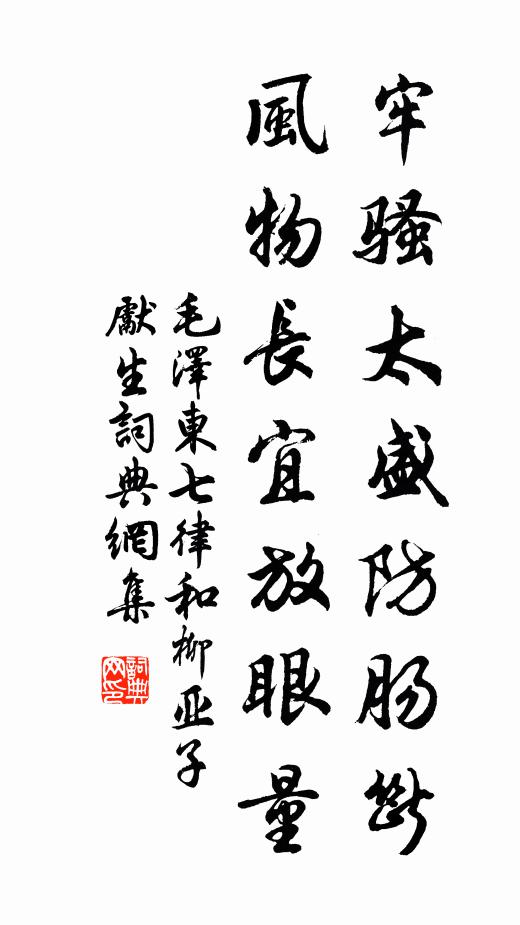 牢騷太盛防肠斷
風物長宜放眼量
毛澤東七律和柳亚子
獻生詞典網集
詞典
网印